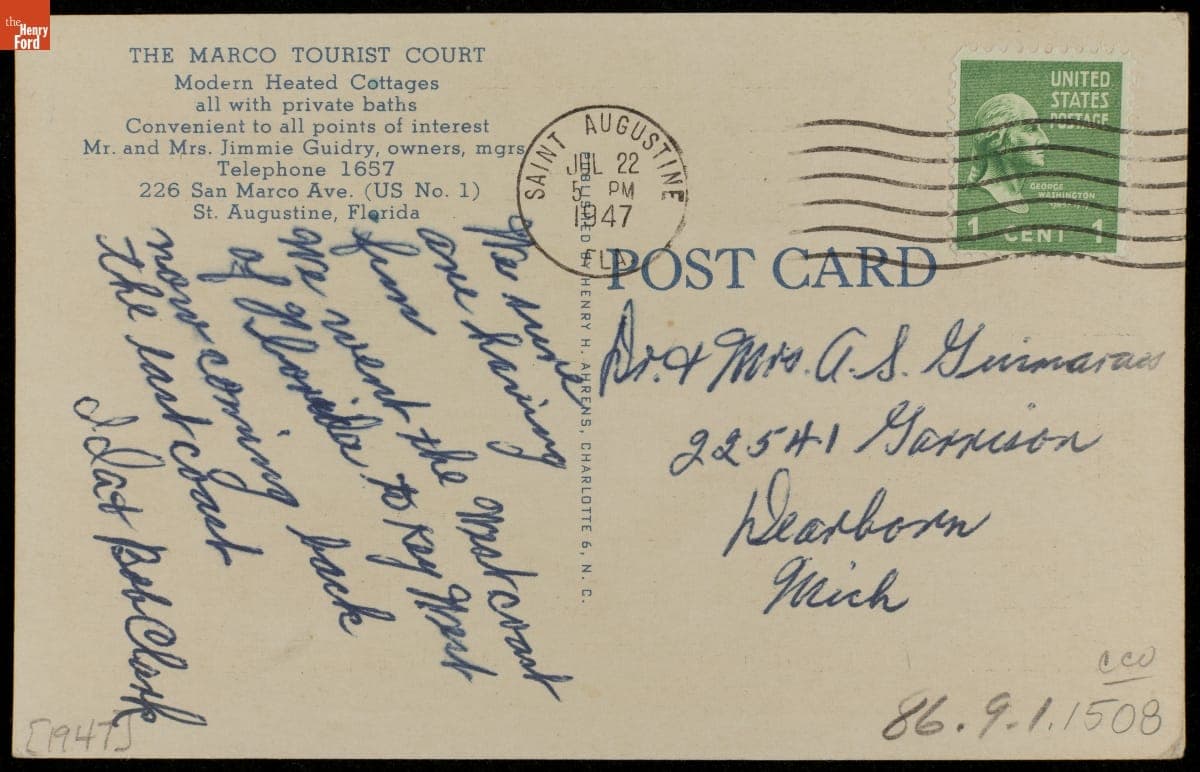 the
Henry
Ford
THE MARCO TOURIST COURT
Modern Heated Cottages
all with private baths
Convenient to all points of interest
Mr. and Mrs. Jimmie Guidry, owners, mgrs
Telephone 1657
226 San Marco Ave. (US No. 1)
St. Augustine, Florida
We sure
are having
fun
We went the West coast
of Florida to Key West
now coming back
the East coast
Dat Bob Clark
PUBLISHED BY HENRY H. AHRENS, CHARLOTTE 6, N. C.
SAINT AUGUSTINE
JUL 22
5 PM
1947
FLA
UNITED
STATES
POSTAGE
GEORGE
WASHINGTON
1 CENT 1
POST CARD
Dr. & Mrs. A. S. Guimaraes
22541 Garrison
Dearborn
Mich
cco
86.9.1.1508
[1947]